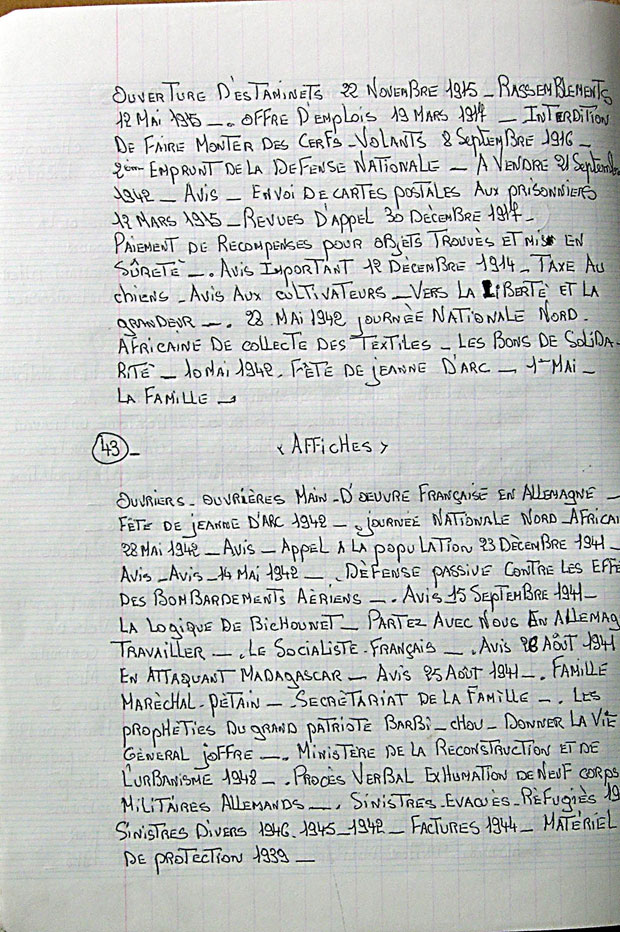 OUVERTURE D'ESTAMINETS 22 NOVEMBRE 1915 _ RASSEMBLEMENTS
12 MAI 1915 _. OFFRE D'EMPLOIS 19 MARS 1917 _ INTERDITION
DE FAIRE MONTER DES CERFS-VOLANTS 8 SEPTEMBRE 1916 _
2ème EMPRUNT DE LA DEFENSE NATIONALE _ A VENDRE 21 Septemb
1942 _ AVIS _ ENVOI DE CARTES POSTALES AUX PRISONNIERS
12 MARS 1915 _ REVUES D'APPEL 30 DÉCEMBRE 1917 _
PAIEMENT DE RECOMPENSES POUR OBJETS TROUVÉS ET MIS EN
SÛRETÉ _. AVIS IMPORTANT 12 DÉCEMBRE 1914 _ TAXE AU
CHIENS _ AVIS AUX CULTIVATEURS _ VERS LA LIBERTÉ ET LA
GRANDEUR _. 28 MAI 1942 JOURNÉE NATIONALE NORD.
AFRICAINE DE COLLECTE DES TEXTILES _ LES BONS DE SOLIDA-
RITÉ _ 10 MAI 1942. FÊTE DE JEANNE D'ARC _ 1er MAI _
LA FAMILLE _
43 _ < AFFICHES >
OUVRIERS. OUVRIÈRES MAIN-D'OEUVRE FRANÇAISE EN ALLEMAGNE _
FÊTE DE JEANNE D'ARC 1942 _. JOURNÉE NATIONALE NORD-AFRICAI
28 MAI 1942 _ AVIS _ APPEL A LA POPULATION 23 DÉCEMBRE 1941 _
AVIS _ AVIS _ 14 MAI 1942 _. DÉFENSE PASSIVE CONTRE LES EFFE
DES BOMBARDEMENTS AÉRIENS _. AVIS 15 SEPTEMBRE 1941 _
LA LOGIQUE DE BICHOUNET _ PARTEZ AVEC NOUS EN ALLEMAG
TRAVAILLER _. LE SOCIALISTE-FRANÇAIS _. AVIS 28 AOÛT 1941
EN ATTAQUANT MADAGASCAR _ AVIS 25 AOÛT 1941 _. FAMILLE
MARÉCHAL-PÉTAIN _ SECRÉTARIAT DE LA FAMILLE _. LES
PROPHÉTIES DU GRAND PATRIOTE BARBI-CHOU _ DONNER LA VIE
GÉNÉRAL JOFFRE _. MINISTÈRE DE LA RECONSTRUCTION ET DE
L'URBANISME 1948 _. PROCÈS VERBAL EXHUMATION DE NEUF CORPS
MILITAIRES ALLEMANDS _. SINISTRES-EVACUÉS-RÉFUGIÉS 19
SINISTRES DIVERS 1946.1945_1942 _ FACTURES 1944 _ MATÉRIEL
DE PROTECTION 1939 _